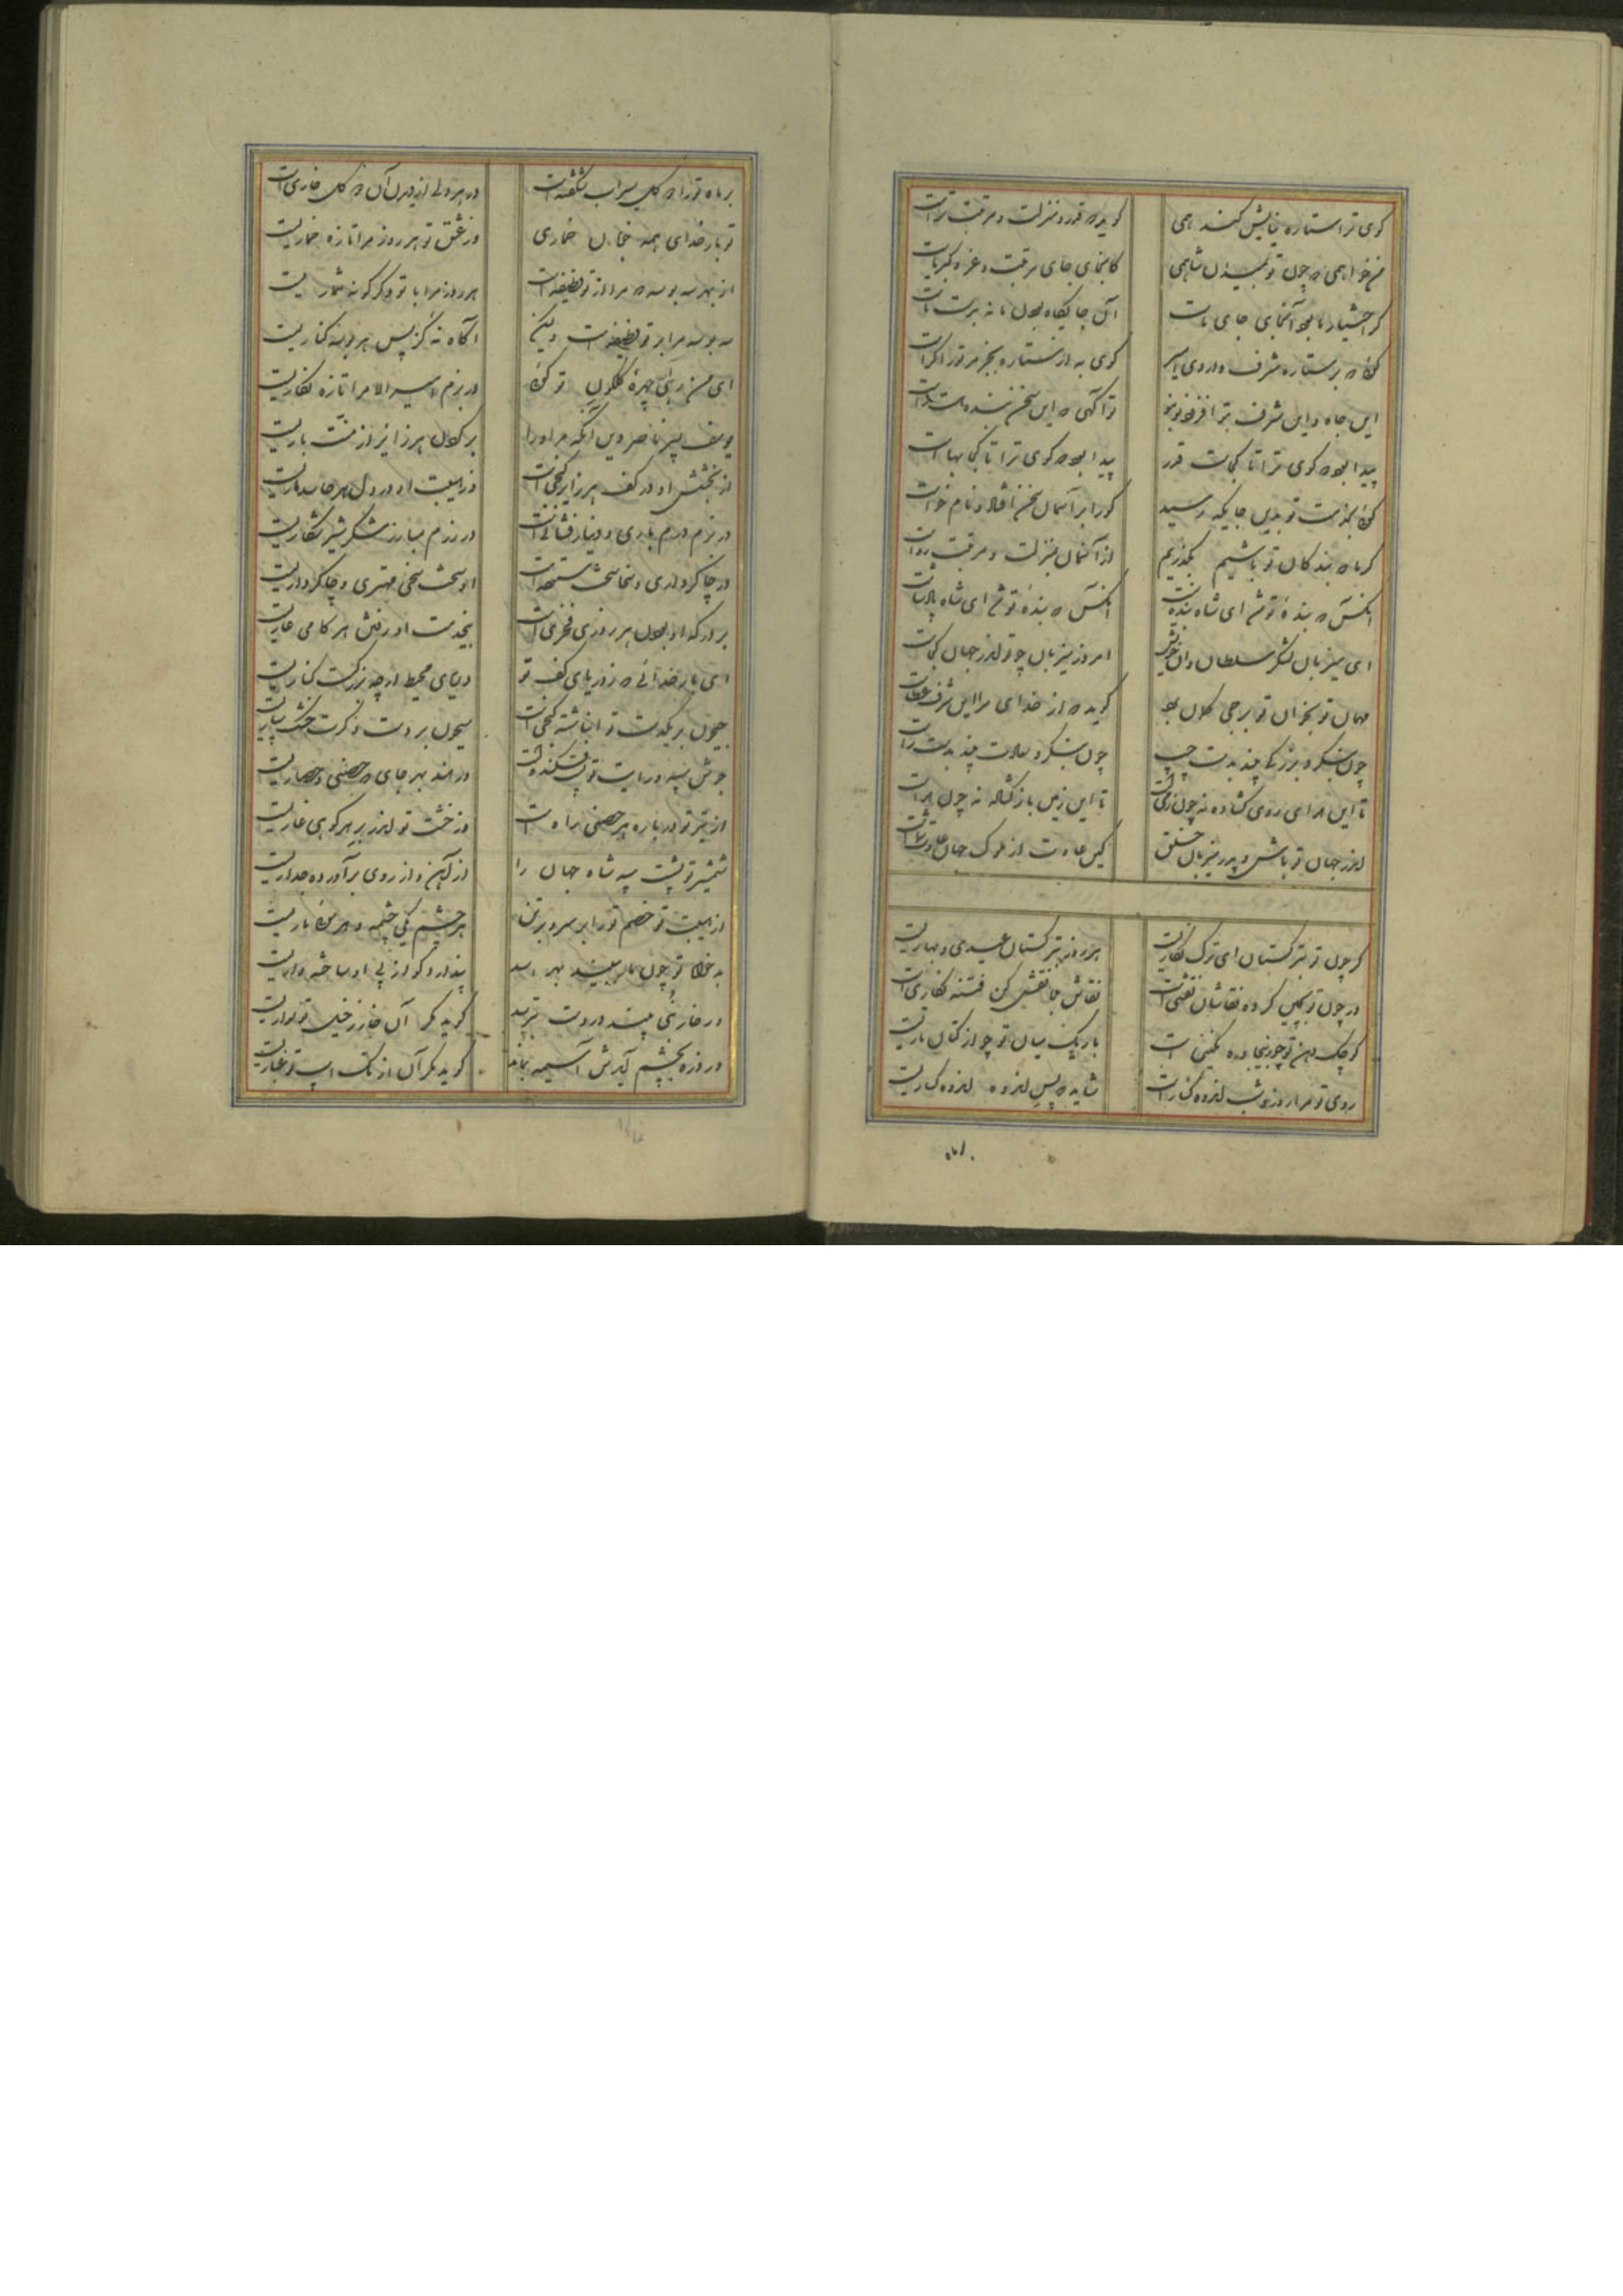 کوی ترا ستاره نیایش کند همی گوید که قدر و منزلت و مرتبت تراست
من خواهمی که چون تو بمیدان شاهمی کانجای جای مرتبت و عز و کبریاست
گر اختیار ما بود آنجای جای ماست آن جایگاه بودن ما نه بدست ماست
کوی به از ستاره
این جاه و این شرف بتو افزون تو آگهی که این سخن بنده است راست
پیدا بود که کوی ترا تا کجاست قدر پیدا بود که کوی ترا تا کجا بهاست
کوی بخدمت تو بدین جایگه رسید کورا بر آسمان سخن افتاد و نام خواست
گر ما که بندگان تو باشیم بگذریم از آسمان بمنزلت و مرتبت رواست
آنکس که بنده تو شد ای شاه بنده نیست آنکس که بنده تو شد ای شاه پادشاست
ای میزبان لشکر سلطان امروز میزبان چو تو اندر جهان کجاست
مهمان تو بخوان تو گوید که از خدای مرا این شرف عطاست
چون بنگرد بزرگی چند بدست چپ چون بنگرد سعادت چند بدست راست
تا این هوای روی گشاده نه چون زمیست تا این زمین باز کشیده نه چون هواست
اندر جهان تو باش و پدر میزبان خلق کین عادت از ملوک جهان عادت شماست
گر چون تو بترکستان ای ترک نگاریست هر روز بترکستان عیدی و بهاریست
ور چون تو بچین کرده نقاشان نقشی است نقاش بلا نقش کن فتنه نگاری است
کوچک دهن تو چو باریک میان تو چو از کتان تاریست
روی تو مرا روز و شب اندوه گسار است شاید که پس اندوه اندوه گساریست
بر ماه ترا دو گل سیراب شکفته است در هر دلی از دیدن آن دو گل خاری است
تو بار خدای همه خوبان خماری وز عشق تو هر روز مرا تازه خماریست
از بهر سه بوسه که مرا از تو وظیفه است هر روز مرا با تو دگرگونه شماریست
سه بوسه مرا بر تو وظیفه است ولیکن آگاه نه کز پس هر بوسه کناریست
ای من رهی چهره گلگون تو گویی در بزم امیر الامرا تازه نگاریست
یوسف پسر ناصر دین آنکه مر او را بر گردن هر زایر از منت باریست
از بخشش او در کف هر زایر گنجی است وز هیبت او در دل هر حاسد ماریست
در بزم درم باری و دینار فشانی است در رزم مبارز شکر شیر شکاریست
در چاکرداری و سخا سخت ستوده است او سخت سخی مهتری و چاکر داریست
بر درگه او بودن هر روزی فخری است بیخدمت او رفتن هر گامی عاریست
ای بار خدایی که ز دریای کف تو دریای محیط ار چه بزرگست کناریست
جیحون بر یکدست تو انباشته گنجی است سیحون بر دست دگرت خشک
در هند بهر جای که حصنی و حصاریست
از تیر تو در باره هر حصنی راه است وز خشت تو اندر بر هر کوهی غاریست
شمشیر تو پشت سپه شاه جهان را از آهن و از روی برآورده جداریست
از هیبت تو خصم ترا بر سر و بر تن هر چشم یکی چشمه و هر موی ماریست
بدخواه تو چون پندارد کو از پی او
ور خار بنی بیند در دشت بترسد گوید مگر آن خار ز خیل تو سواریست
ور ذره بچشم آیدش آسیمه بماند گوید مگر آن از تک اسب تو غباریست